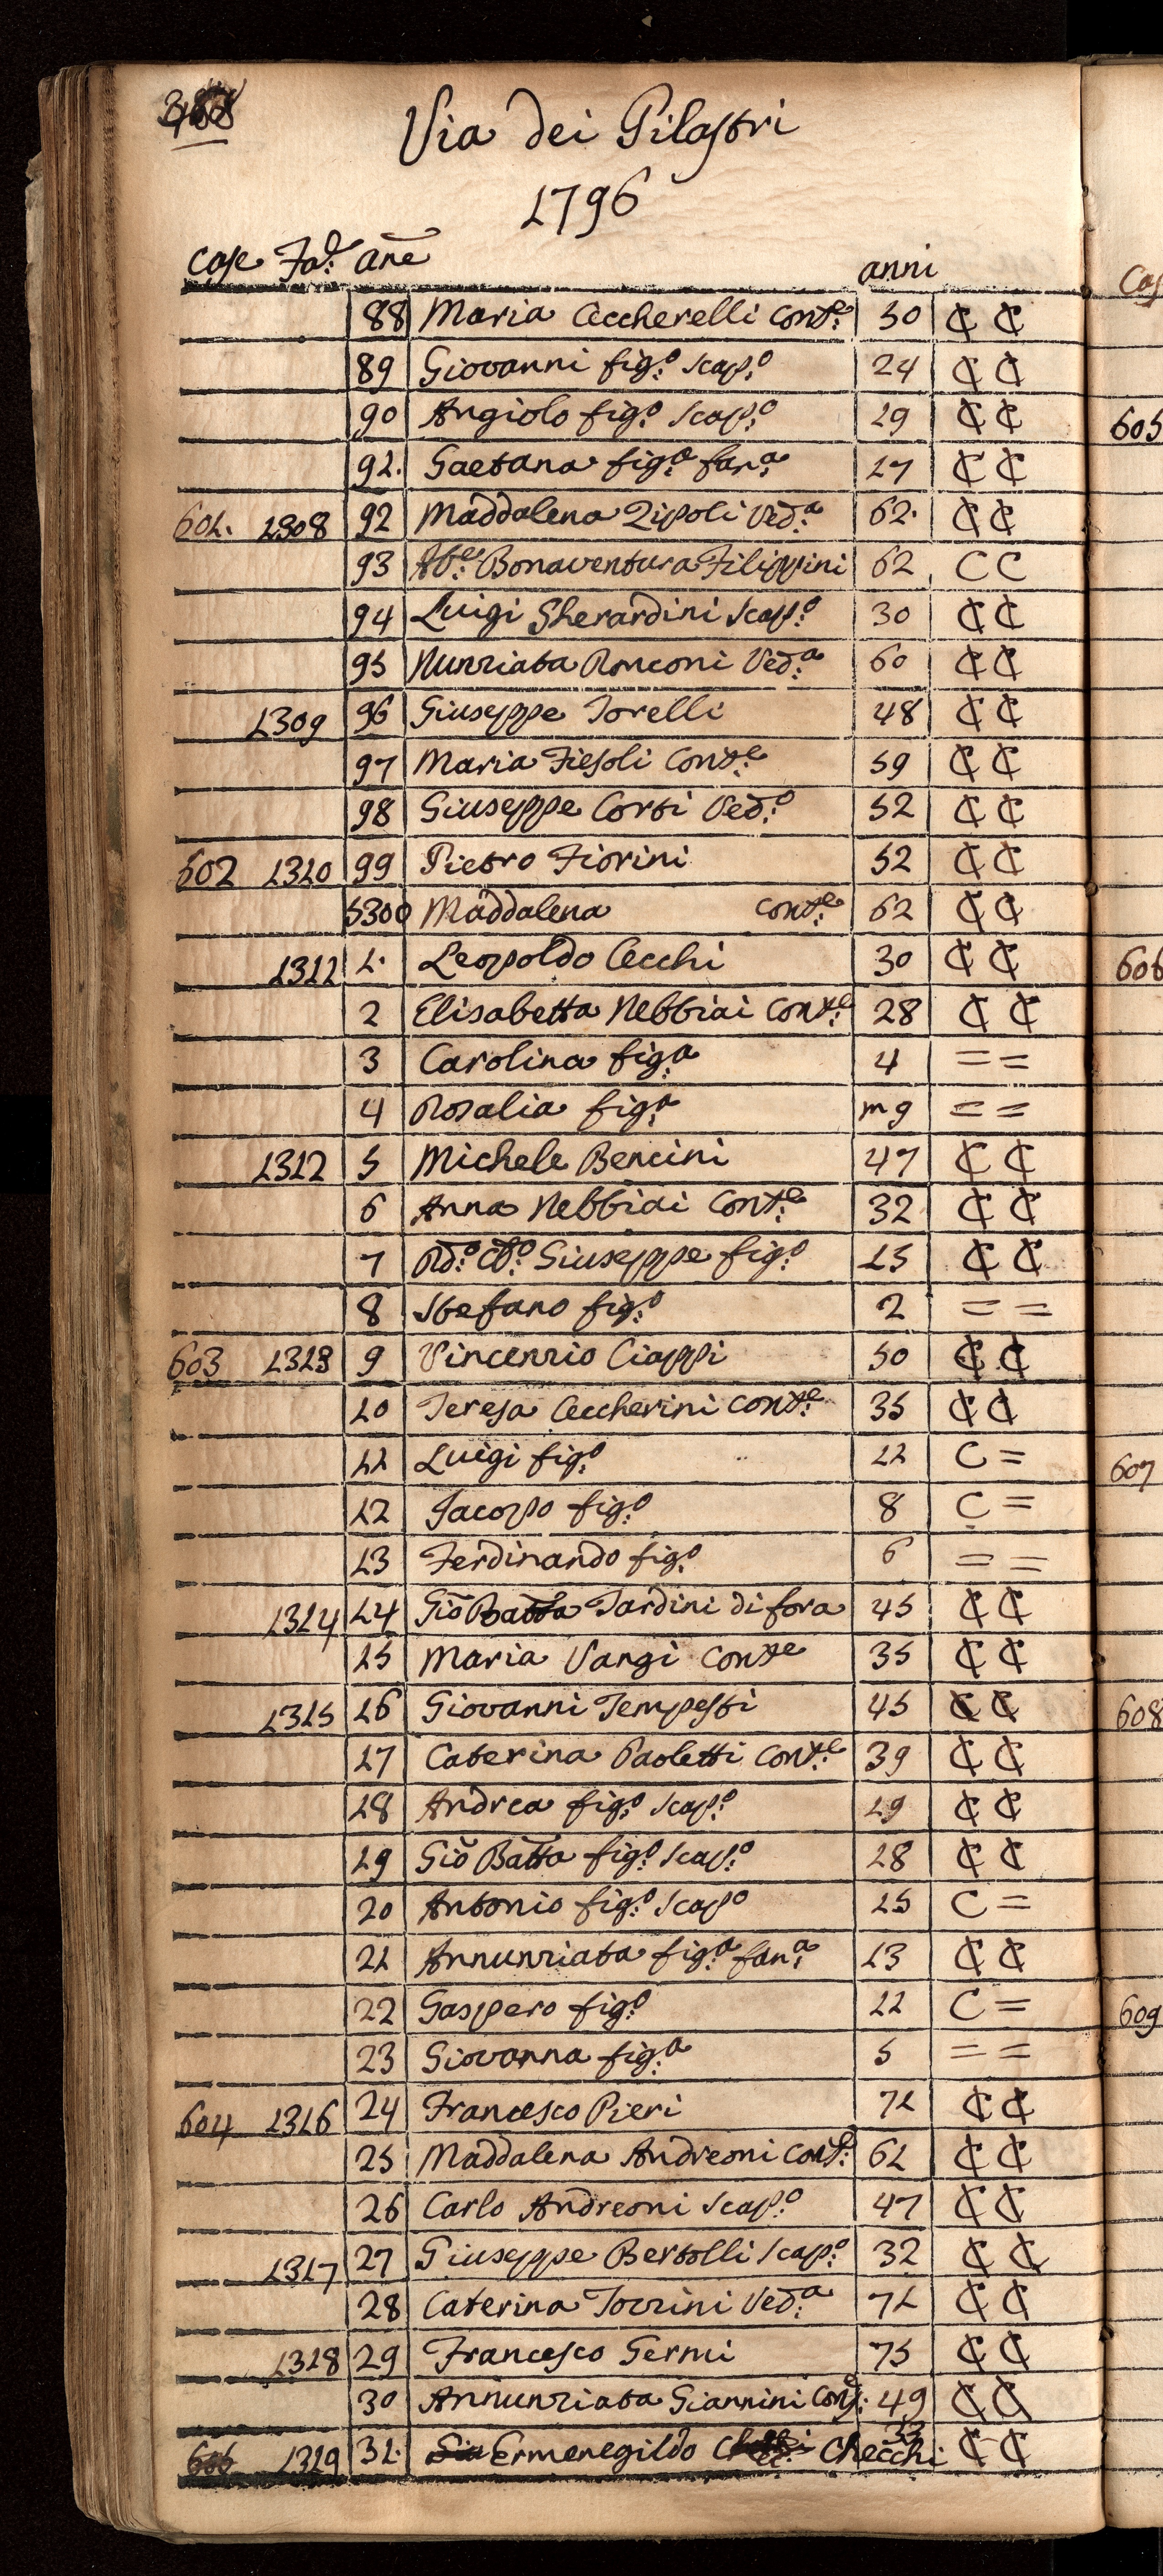 Via dei Pilastri
1796
Case Fad: anē anni
88 Maria Ceccherelli Cont:e 50 ₵ ₵
89 Giovanni fig:o scap:o 24 ₵ ₵
605
90 Angiolo fig:o scap:o 19 ₵ ₵
91. Gaetana fig:a fan:a 17 ₵ ₵
601. 1308 92 Maddalena Zipoli Ved:a 62. ₵ ₵
93 Ab:e Bonaventura Filippini 62 C C
94 Luigi Gherardini scap:o 30 ₵ ₵
95 Nunziata Ronconi Ved:a 60 ₵ ₵
1309 96 Giuseppe Torelli 48 ₵ ₵
97 Maria Fiesoli Cont:e 59 ₵ ₵
98 Giuseppe Corsi Ved:o 52 ₵ ₵
602 1310 99 Pietro Fiorini 52 ₵ ₵
5300 Maddalena cont:e 62 ₵ ₵
1311 1. Leopoldo Cecchi 30 ₵ ₵
606
2 Elisabetta Nebbiai Cont:e 28 ₵ ₵
3 Carolina fig:a 4 = =
4 Rosalia fig:a m 9 = =
1312 5 Michele Bencini 47 ₵ ₵
6 Anna Nebbiai Cont:e 32 ₵ ₵
7 Rd:o Giuseppe fig:o 15 ₵ ₵
8 Stefano fig:o 2 = =
603 1313 9 Vincenzio Ciappi 50 ₵ ₵
10 Teresa Ceccherini cont:e 35 ₵ ₵
11 Luigi fig:o 11 C =
607
12 Jacopo fig:o 8 C =
13 Ferdinando fig:o 6 = =
1314 14 Gio Batta Tardini di fora 45 ₵ ₵
15 Maria Vangi Conte 35 ₵ ₵
1315 16 Giovanni Tempesti 45 ₵ ₵
608
17 Caterina Paoletti Cont:e 39 ₵ ₵
18 Andrea fig:o scap:o 19 ₵ ₵
19 Gio Batta fig:o scap:o 18 ₵ ₵
20 Antonio fig:o scapo 15 C =
21 Annunziata fig:a fan:a 13 ₵ ₵
22 Gaspero fig:o 11 C =
609
23 Giovanna fig:a 5 = =
604 1316 24 Francesco Pieri 71 ₵ ₵
25 Maddalena Andreoni Cont: 61 ₵ ₵
26 Carlo Andreoni scap:o 47 ₵ ₵
1317 27 Giuseppe Bertolli scap:o 32 ₵ ₵
28 Caterina Torrini Ved:a 71 ₵ ₵
1318 29 Francesco Germi 75 ₵ ₵
30 Annunziata Giannini Cont: 49 ₵ ₵
1319 31. Ermenegildo Checchi 33 ₵ ₵